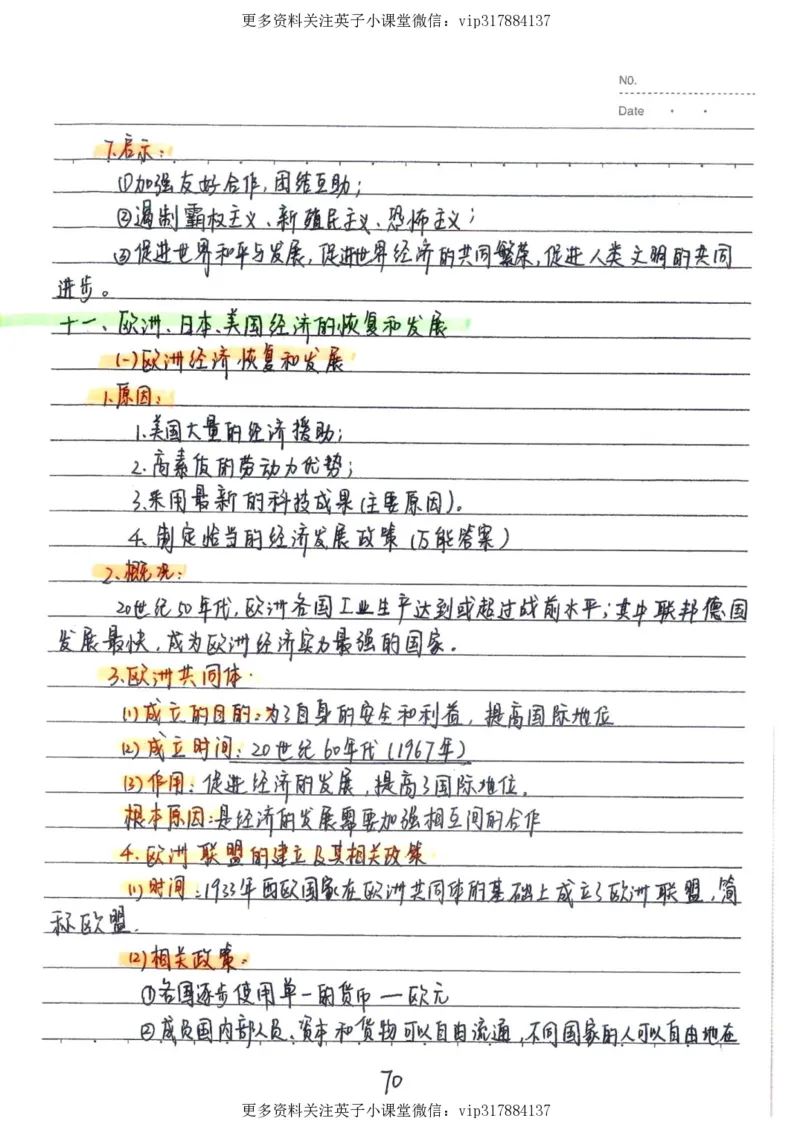 更多资料关注英子小课堂微信：vip317884137
NO.
Date
7.启示：
①加强友好合作,团结互助；
②遏制霸权主义、新殖民主义、恐怖主义；
③促进世界和平与发展,促进世界经济的共同繁荣,促进人类文明的共同
进步。
十一、欧洲、日本、美国经济的恢复和发展
(一)欧洲经济恢复和发展
1.原因：
1.美国大量的经济援助；
2.高素质的劳动力优势；
3.采用最新的科技成果(主要原因)。
4.制定恰当的经济发展政策(万能答案)
2.概况：
20世纪50年代,欧洲各国工业生产达到或超过战前水平；其中联邦德国
发展最快,成为欧洲经济实力最强的国家。
3.欧洲共同体.
(1)成立的目的：为了自身的安全和利益,提高国际地位
(2)成立时间：20世纪60年代(1967年)
(3)作用：促进经济的发展,提高了国际地位。
根本原因：是经济的发展需要加强相互间的合作
4.欧洲联盟的建立及其相关政策
(1)时间：1933年西欧国家在欧洲共同体的基础上成立了欧洲联盟,简
称欧盟.
(2)相关政策：
①各国逐步使用单一的货币—欧元
②成员国内部人员、资本和货物可以自由流通,不同国家的人可以自由地在
70
更多资料关注英子小课堂微信：vip317884137